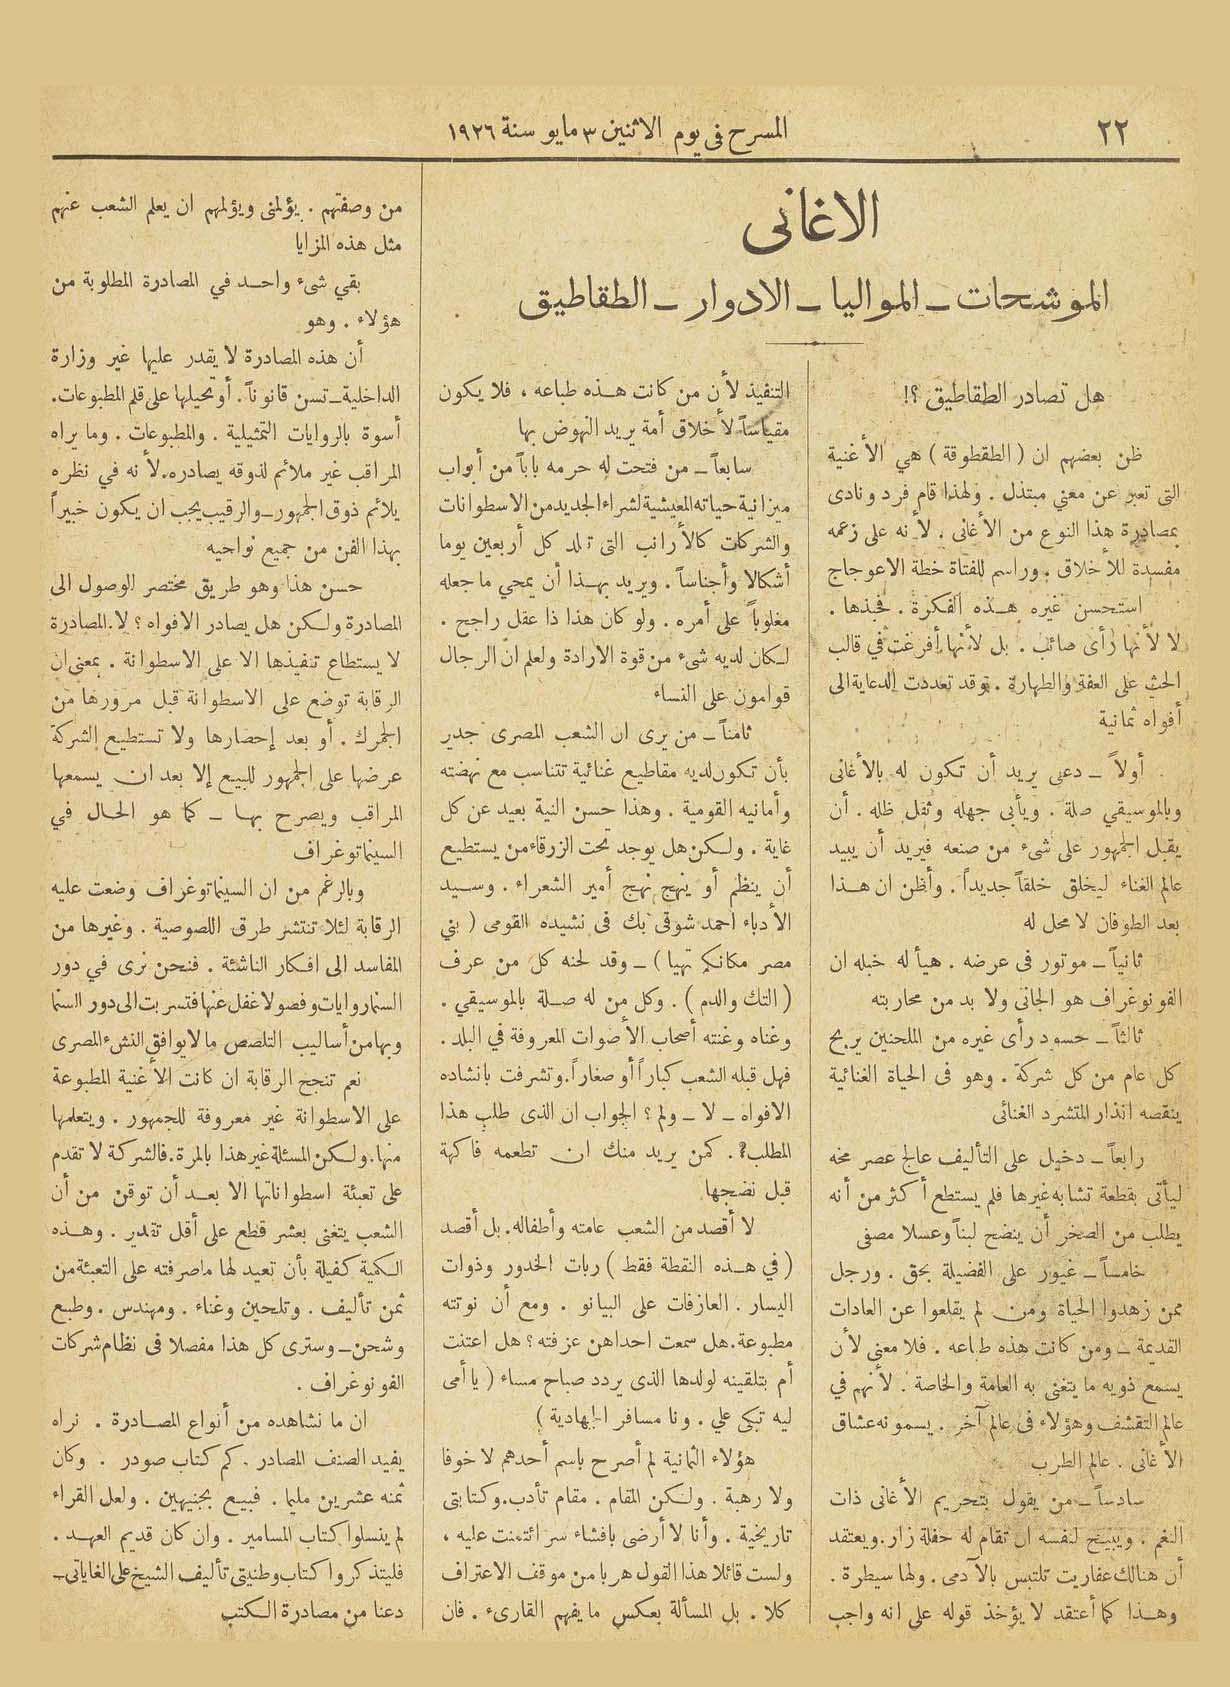 ٢٢
المسرح في يوم الاثنين ٣ مايو سنة ١٩٢٦
الاغانى
الموشحات ــ المواليا ــ الادوار ــ الطقاطيق
هل تصادر الطقاطيق ؟!
ظن بعضهم ان ( الطقطوقة ) هي الأغنية
التى تعبر عن معنى مبتذل . ولهذا قام فرد ونادى
بمصادرة هذا النوع من الأغانى . لأنه على زعمه
مفسدة للأخلاق . وراسم للفتاة خطة الاعوجاج
استحسن غيره هــذه الفكرة . فحبذها .
لا لأنها رأى صائب . بل لأنها أفرغت في قالب
الحث على العفة والطهارة . وقد تعددت الدعاية الى
أفواه ثمانية
أولاً ــ دعى يريد أن تكون له بالأغانى
وبالموسيقي صلة . ويأبى جهله وثقل ظله . أن
يقبل الجمهور على شىء من صنعه فيريد أن يبيد
عالم الغناء ليخلق خلقاً جديداً . وأظن ان هــذا
بعد الطوفان لا محل له
ثانياً ــ موتور فى عرضه . هيأ له خبله ان
الفونوغراف هو الجانى ولا بد من محاربته
ثالثاً ــ حسود رأى غيره من الملحنين يربح
كل عام من كل شركة . وهو فى الحياة الغنائية
ينقصه انذار المتشرد الغنائى
رابعاً ــ دخيل على التأليف عالج عصر مخه
ليأتى بقطعة تشابه غيرها فلم يستطع أكثر من أنه
يطلب من الصخر أن ينضح لبناً وعسلا مصفى
خامساً ــ غيور على الفضيلة بحق . ورجل
ممن زهدوا الحياة ومن لم يقلعوا عن العادات
القديمة ــ ومن كانت هذه طباعه . فلا معنى لأن
يسمع ذويه ما يتغنى به العامة والخاصة . لأنهم في
عالم التقشف وهؤلاء فى عالم آخر . يسمونه عشاق
الأغانى . عالم الطرب
سادساً ــ من يقول بتحريم الأغانى ذات
النغم . ويبيح لنفسه ان تقام له حفلة زار . ويعتقد
أن هنالك عفاريت تلتبس بالآدمى . ولها سيطرة .
وهــذا كما أعتقد لا يؤخذ قوله على انه واجب
التنفيذ لأن من كانت هــذه طباعه ، فلا يكون
مقياساً لأخلاق أمة يريد النهوض بها
سابعاً ــ من فتحت له حرمه باباً من أبواب
ميزانية حياته المعيشية لشراء الجديد من الاسطوانات
والشركات كالأرانب التى تلد كل أربعين يوما
أشكالا وأجناساً . ويريد بهــذا أن يمحي ما جعله
مغلوباً على أمره . ولو كان هذا ذا عقل راجح .
لكان لديه شىء من قوة الارادة ولعلم ان الرجال
قوامون على النساء
ثامناً ــ من يرى ان الشعب المصرى جدير
بأن تكون لديه مقاطيع غنائية تتناسب مع نهضته
وأمانيه القومية . وهذا حسن النية بعيد عن كل
غاية . ولكن هل يوجد تحت الزرقاء من يستطيع
أن ينظم أو ينهج نهج أمير الشعراء . وسيد
الأدباء احمد شوقى بك فى نشيده القومى ( بني
مصر مكانكم تهيا ) ــ وقد لحنه كل من عرف
( التك والدم ) . وكل من له صــلة بالموسيقي .
وغناه وغنته أصحاب الأصوات المعروفة في البلد .
فهل قبله الشعب كباراً أو صغاراً . وتشرفت بانشاده
الافواه ــ لا ــ ولم ؟ الجواب ان الذى طلب هذا
المطلب ؟ . كمن يريد منك ان تطعمه فاكهة
قبل نضجها
لا أقصد من الشعب عامته وأطفاله . بل أقصد
( في هــذه النقطة فقط ) ربات الخدور وذوات
اليسار . العازفات على البيانو . ومع أن نوتته
مطبوعة . هل سمعت احداهن عزفته ؟ هل اعتنت
أم بتلقينه لولدها الذى يردد صباح مساء ( يا أمى
ليه تبكى علي . ونا مسافر الجهادية )
هؤلاء الثمانية لم أصرح باسم أحدهم لا خوفا
ولا رهبة . ولكن المقام . مقام تأدب . وكتابتى
تاريخية . وأنا لا أرضى بافشاء سر ائتمنت عليه ،
ولست قائلا هذا القول هربا من موقف الاعتراف
كلا . بل المسألة بعكس ما يفهم القارىء . فان
من وصفتهم . يؤلمنى ويؤلمهم ان يعلم الشعب عنهم
مثل هذه المزايا
بقي شىء واحــد في المصادرة المطلوبة من
هؤلاء . وهو
أن هذه المصادرة لا يقدر عليها غير وزارة
الداخلية ــ تسن قانوناً . أو تحيلها على قلم المطبوعات .
أسوة بالروايات التمثيلية . والمطبوعات . وما يراه
المراقب غير ملائم لذوقه يصادره . لأنه في نظره
يلائم ذوق الجمهور ــ والرقيب يجب ان يكون خبيراً
بهذا الفن من جميع نواحيه
حسن هذا وهو طريق مختصر الوصول الى
المصادرة ولكن هل يصادر الافواه ؟ لا . المصادرة
لا يستطاع تنفيذها الا على الاسطوانة . بمعنى ان
الرقابة توضع على الاسطوانة قبل مرورها من
الجمرك . أو بعد إحضارها ولا تستطيع الشركة
عرضها على الجمهور للبيع إلا بعد ان يسمعها
المراقب ويصرح بهــا ــ كما هو الحــال في
السينماتوغراف
وبالرغم من ان السينماتوغراف وضعت عليه
الرقابة لئلا تنتشر طرق اللصوصية . وغيرها من
المفاسد الى افكار الناشئة . فنحن نرى في دور
السنما روايات وفصولا غفل عنها فتسربت الى دور السنما
وبها من أساليب التلصص ما لا يوافق النشء المصرى
نعم تنجح الرقابة ان كانت الأغنية المطبوعة
على الاسطوانة غير معروفة للجمهور . ويتعلمها
منها . ولكن المسئلة غير هذا بالمرة . فالشركة لا تقدم
على تعبئة اسطواناتها الا بعــد أن توقن من أن
الشعب يتغنى بعشر قطع على أقل تقدير . وهــذه
الكمية كفيلة بأن تعيد لها ما صرفته على التعبئة من
ثمن تأليف . وتلحين وغناء . ومهندس . وطبع
وشحن ــ وسترى كل هذا مفصلا فى نظام شركات
الفونوغراف .
ان ما نشاهده من أنواع المصــادرة . نراه
يفيد الصنف المصادر . كم كتاب صودر . وكان
ثمنه عشرين مليما . فبيع بجنيهين . ولعل القراء
لم ينسلوا كتاب المسامير . وان كان قديم العهــد .
فليتذكروا كتاب وطنيتى تأليف الشيخ على الغاياتى ــ
دعنا من مصادرة الكتب